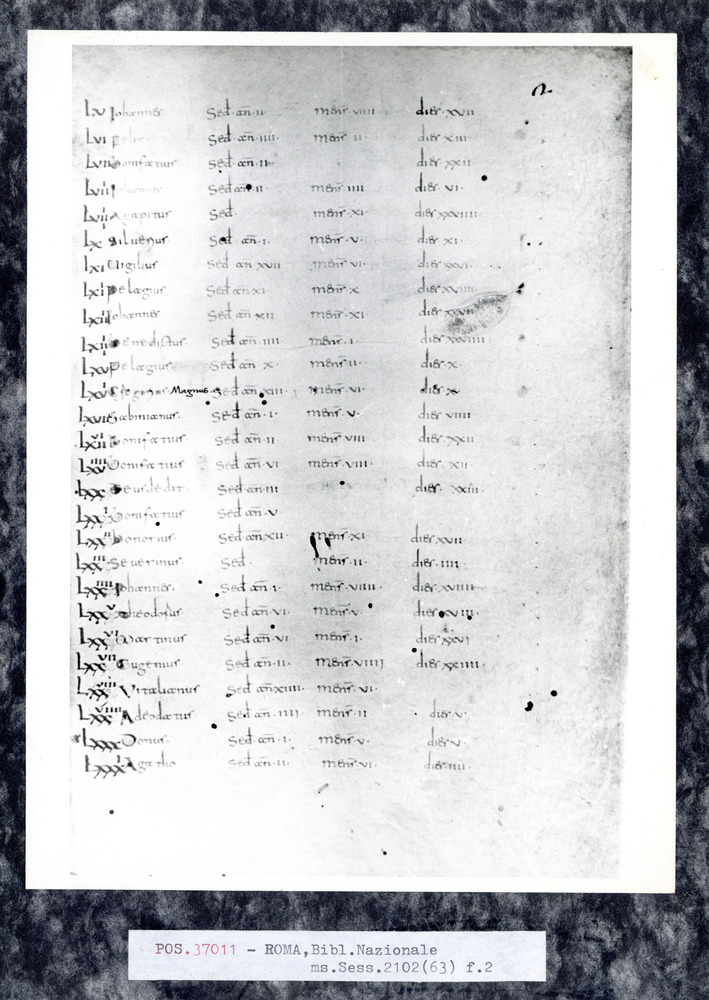 2
LV Iohannes Sed. an. II mens VIIII dies XVII
LVI Felix Sed. an. IIII. mens II dies XIII
LVII Bonifatius Sed. an. II dies XXII
LVIII Iohannes Sed an II mens IIII dies VI.
LVIIII Agapitus Sed. mens XI. dies XXVIIII
LX Siluerius Sed an. I. mens V. dies XI.
LXI Uigilius Sed an XVII mens VI. dies XXVI
LXII Pelagius Sed an XI. mens X dies XVIII
LXIII Iohannes Sed an XII mens XI. dies XXVII
LXIIII Benedictus Sed an. IIII mens I. dies XXVIIII
LXV Pelagius Sed an X. mens II. dies X.
LXVI Gregorius Magnus Sed an. XIII mens VI. dies X
LXVII Sabinianus. Sed an. I. mens V. dies VIIII
LXVIII Bonifatius Sed an II mens VIII dies XXII
LXVIIII Bonifatius Sed an. VI mens VIII. dies XII.
LXX Deusdedit. Sed an III dies XXIII
LXXI Bonifatius Sed an V
LXXII Honorius Sed an XII mens XI dies XVII
LXXIII Seuerinus Sed. mens II. dies IIII
LXXIIII Iohannes. Sed an I. mens VIIII. dies XVIIII
LXXV Theodosus Sed an VI. mens V. dies XVIII
LXXVI Martinus Sed an VI mens I. dies XXVI
LXXVII Eugenius Sed an. II. mens VIIII dies XXIIII
LXXVIII Vitalianus Sed an XIIII mens VI.
LXXVIIII Adeodatus Sed an. IIII mens II dies V.
LXXX Donus Sed an. I. mens V. dies V.
LXXXI Agatho Sed an. II. mens VI. dies IIII.
POS.37011 - ROMA,Bibl.Nazionale
ms.Sess.2102(63) f.2